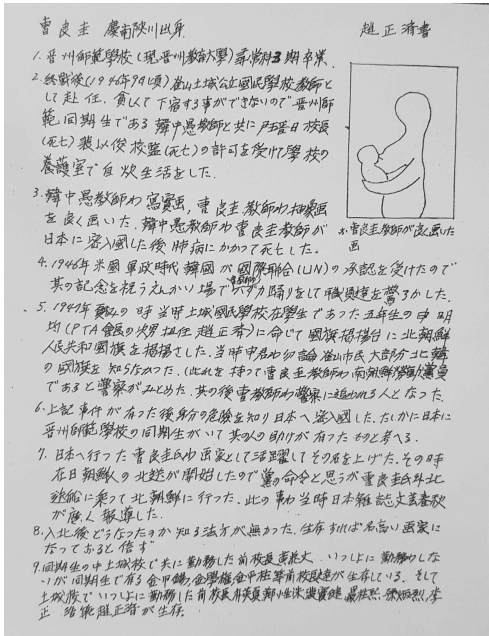 曺良圭 慶南陜川出身. 趙正済書
1. 晋州師範學校(現晋州教育大學)尋常科3期卒業.
2. 終戦後(1946年9月頃) 土城公立國民學校教師と
して赴任. 貧しくて下宿する事ができないので晋州師
範同期生である韓中愚教師と共に 校長
(死亡) 校監(死亡)の許可を受けて學校の
養護室で自炊生活をした.
3. 韓中愚教師わ寫實画, 曺良圭教師わ抽象画
を良く画いた. 韓中愚教師や曺良圭教師が
日本に密入國した後肺病にかかって死亡した.
が曺良圭教師が良く画いた
画
4. 1946年米國軍政時代韓國が國際聯合(UN)の承認を受けたので
其の記念を祝うえんかい場で 踊りをして職員達を驚ろかした.
5. 1947年 の時当時土城國民學校在學生であった五年生の申明
均(PTA會長の次男担任趙正済)に命じて國旗掲揚台に北朝鮮
人民共和國旗を掲揚さした. 当時申君わ勿論 山市民大部分北韓
の國旗を知らなかった. (此れを持って曺良圭教師わ南朝鮮労働党員
であると警察がみとめた. 其の後曺教師わ警察に追われる人となった.
6. 上記事件が有った後身分の危險を知り日本へ密入國した. たしかに日本に
晋州師範學校の同期生がいて其の人の助けが有ったものと考へる.
7. 日本へ行った曺良圭氏わ画家として活躍してその名を上げた. その時
在日朝鮮人の北送が開始したので党の命令と思うが曺良圭氏外北
送船に乗って北朝鮮に行った. 此の事わ当時日本雑誌文芸春秋
が 報導した.
8. 入北後どうなったのか知る法方が無かった. 生存すれば名高い画家に
なっておると信ず
9. 同期生の中土城校で共に勤務した前校長 いつしょに勤務わしな
いが同期生で有る金甲 金學 金中 等前校長達が生存している. そして
土城校でいつしょに勤務した前校長 李
正 浩 趙正済が生存.